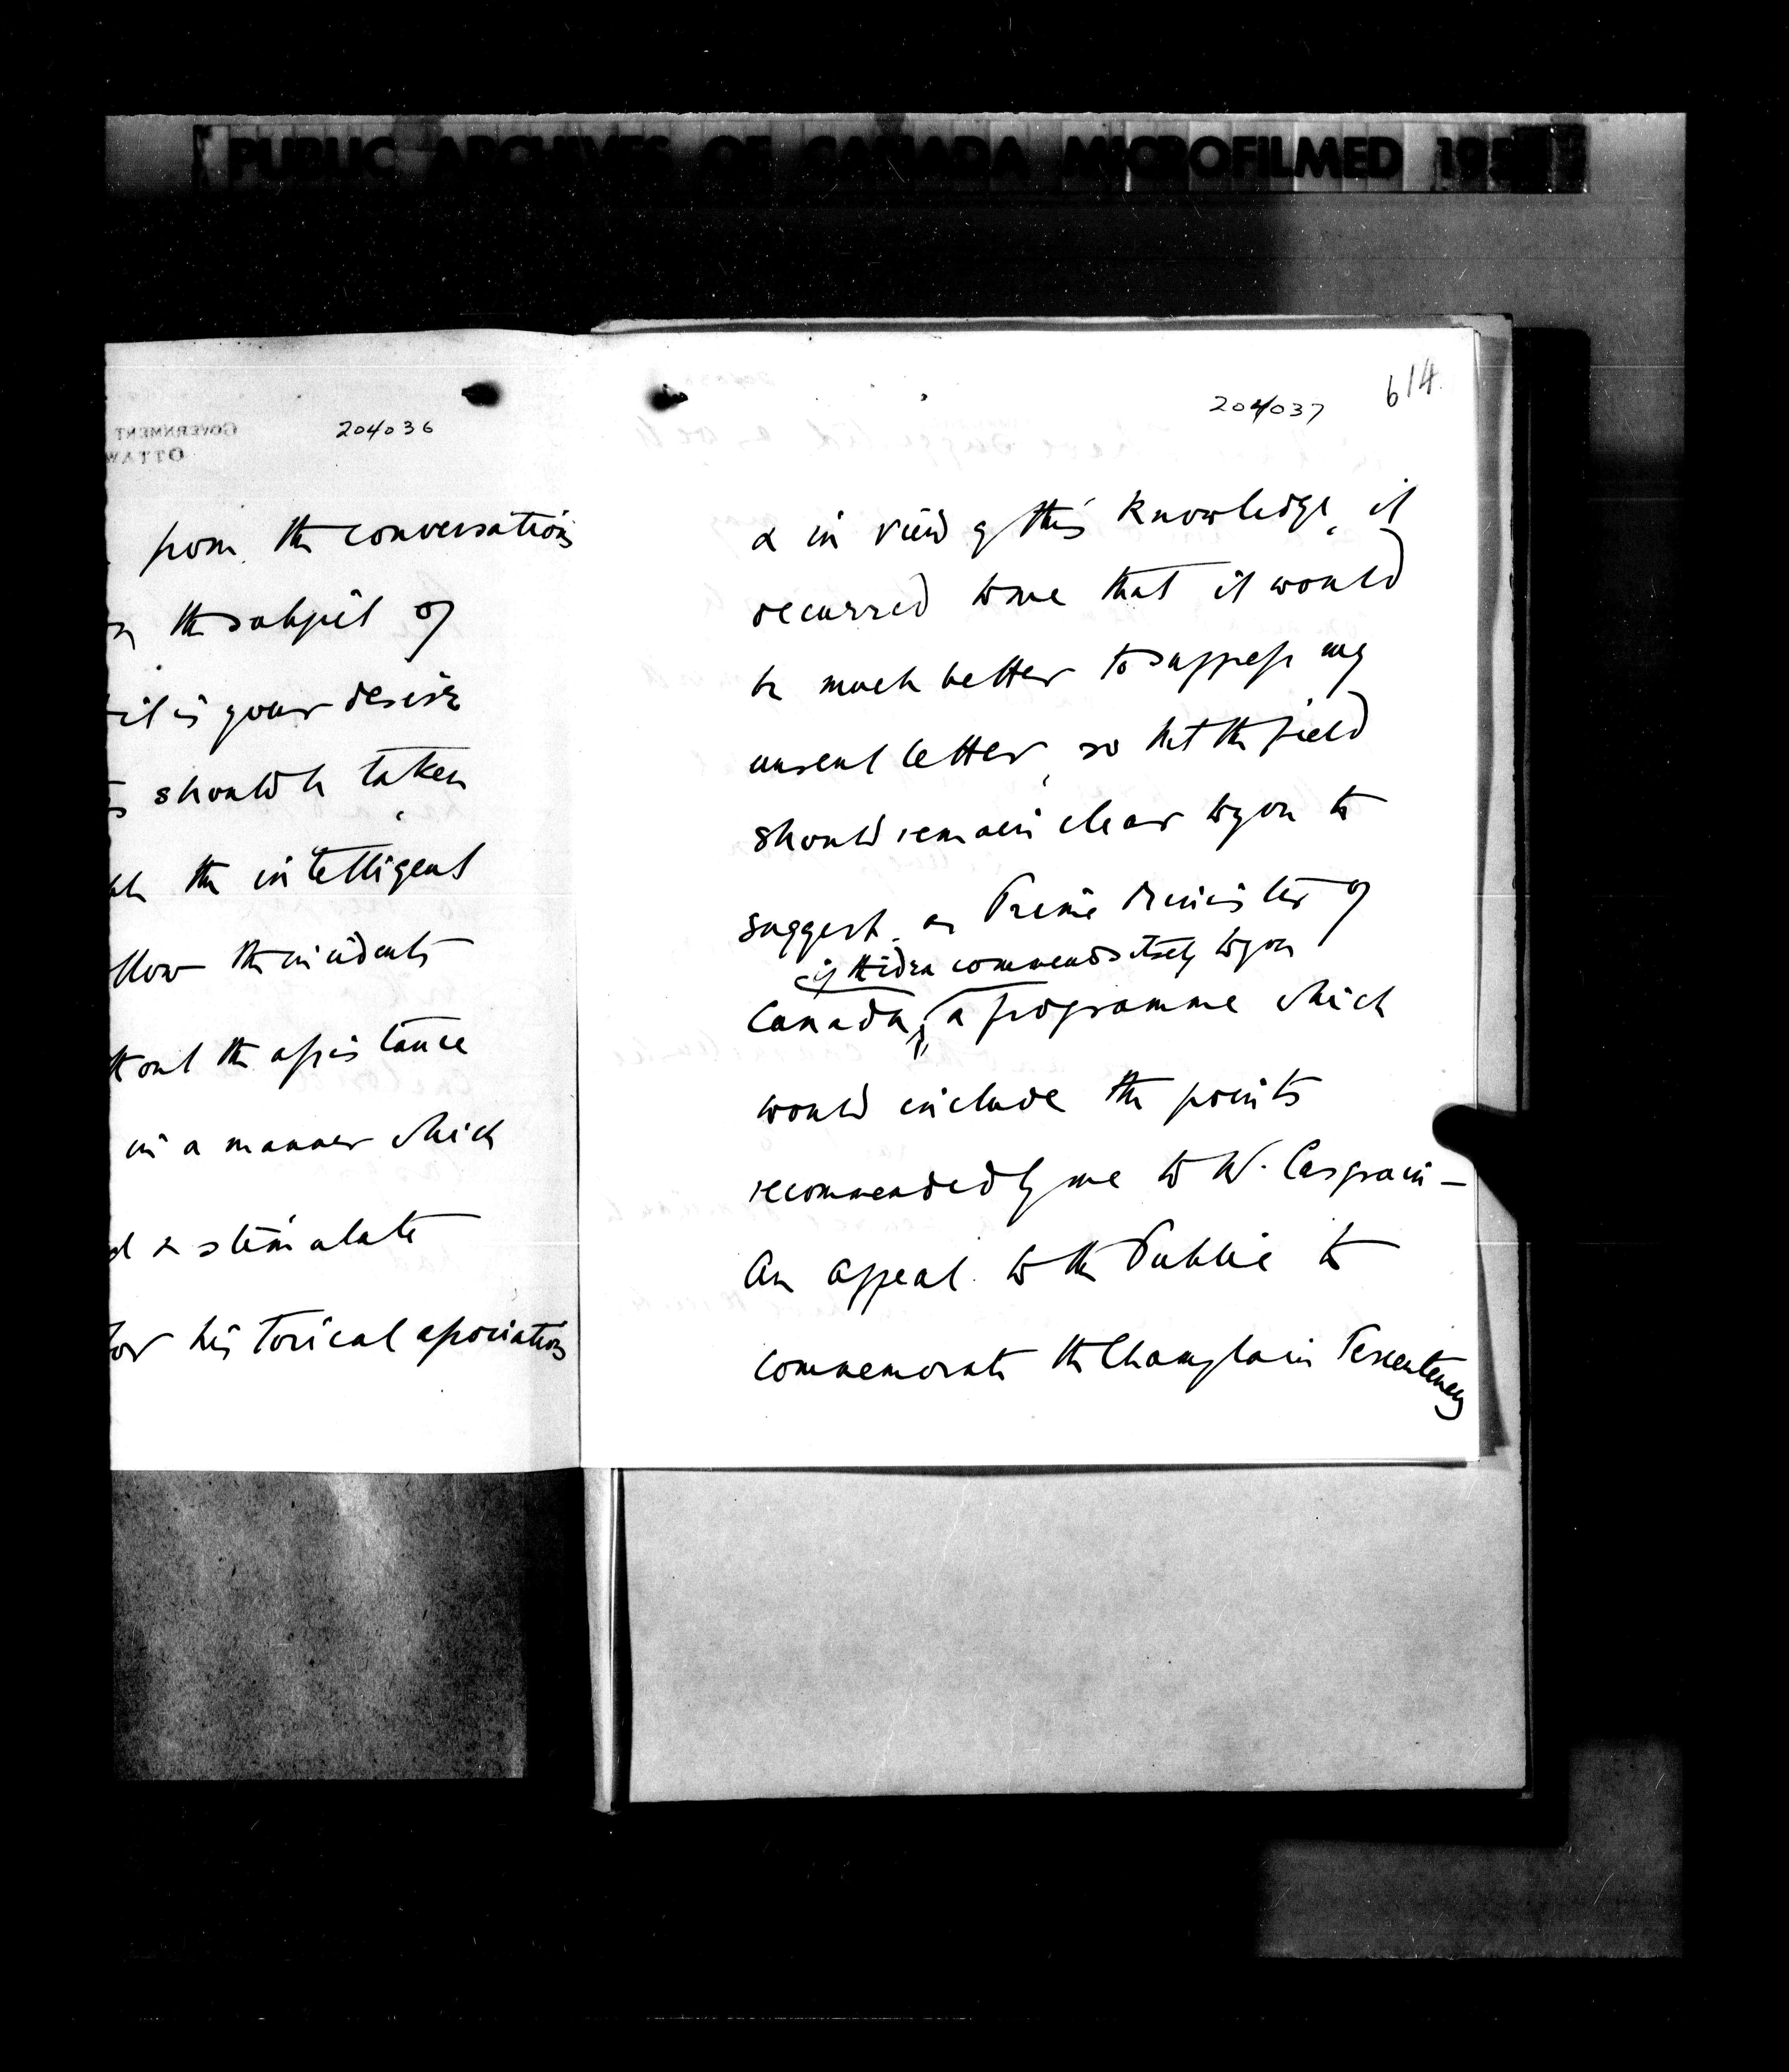 PUBLIC ARCHIVES OF CANADA MICROFILMED 195
GOVERNMENT
OTTAW
204036
from the conversations
the subject of
it is your desire
should be taken
the intelligent
the incidents
the assistance
in a manner which
& stimulate
historical associations
614
204037
& in view of this knowledge, it
occurred to me that it would
be much better to suppress my
unsent letter, so that the field
should remain clear to you to
suggest, as Prime Minister of
if the idea commends itself to you
Canada, a programme which
would include the points
recommended by me to W. Casgrain –
An appeal to the Public to
commemorate the Champlain Tercentenary